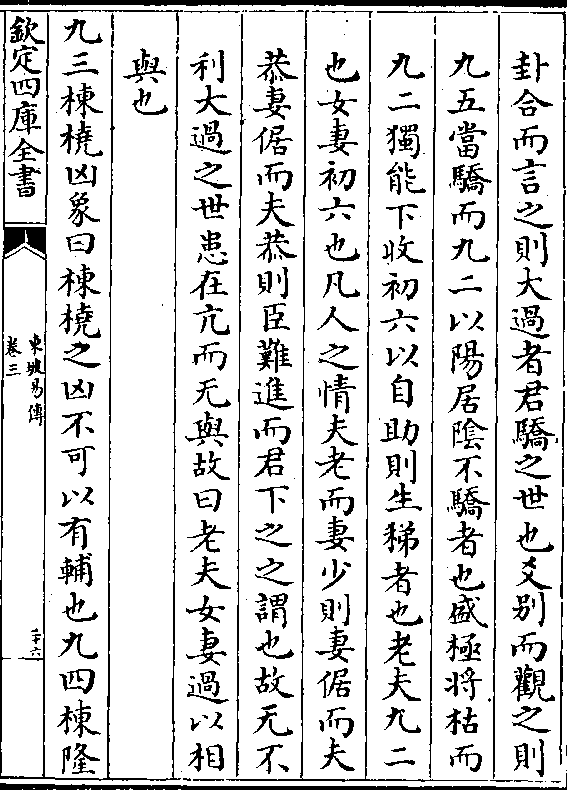 卦合而言之則大過者君驕之世也爻别而觀之則
九五當驕而九二以陽居陰不驕者也盛極将枯而
九二獨能下收初六以自助則生稊者也老夫九二
也女妻初六也凡人之情夫老而妻少則妻倨而夫
恭妻倨而夫恭則臣難進而君下之之謂也故无不
利大過之世患在亢而无與故曰老夫女妻過以相
與也
九三棟橈凶象曰棟橈之凶不可以有輔也九四棟隆
欽定四庫全書
東坡易傳
卷三
二十六